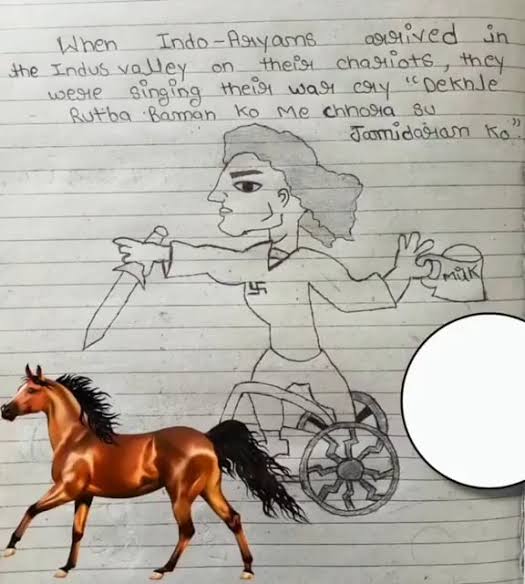 When Indo-Aryans arrived in
the Indus valley on their chariots, they
were singing their war cry "Dekhle
Rutba Baman ko Me chhora su
Jamidaran Ko"
milk